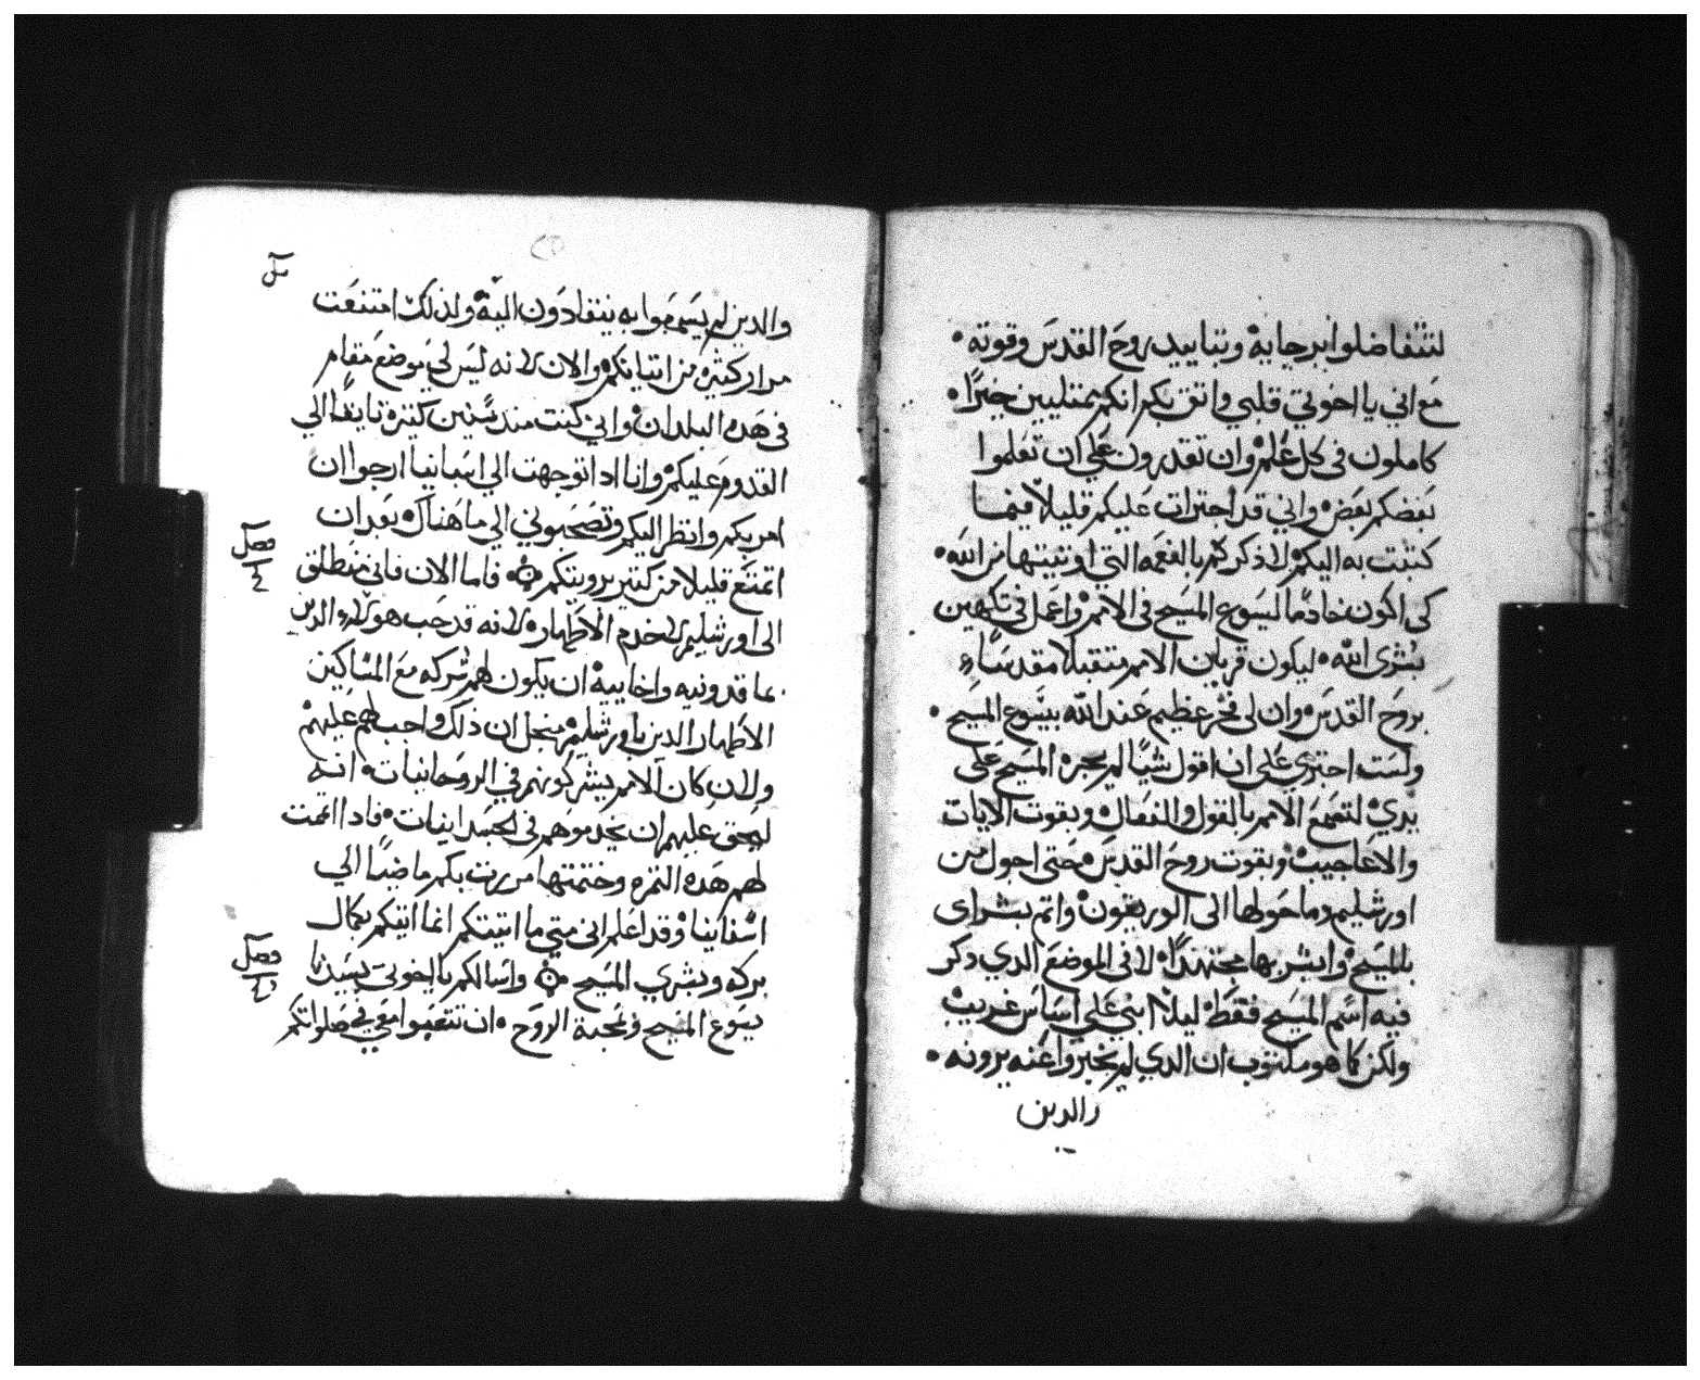 لتتفاضلوا برجايه وبتاييد روح القدس وقوته •
مع اني يا اخوتي قلبي واتق بكم انكم ممتليين خيرًا •
كاملون في كل علم وان تقدرون علي ان تعلموا
بعضكم بعض واني قد اجترات عليكم قليلا فيما
كتبت به اليكم لاذكركم بالنعمه التي اوتيتها من الله •
كي اكون خادمًا ليسوع المسيح في الامم واعمل في تكهين
بشري الله • ليكون قربان الامم متقبلا مقدسًا
بروح القدس وان لي فخر عظيم عند الله بيسوع المسيح •
ولست اجتري علي ان اقول شيًا لم يجره المسيح علي
يدي لتسمع الامم بالقول والفعال وبقوت الايات
والاعاجيب وبقوت روح القدس حتي اجول من
اورشليم وما حولها الى الوريقون واتم بشراى
بالمسيح وابشر بها مجتهدًا لا في الموضع الدي دكر
فيه اسم المسيح فقط ليلا ابني علي اساس غريب
ولكن كما هو مكتوب ان الدي لم يخبروا عنه يرونه •
والدين
والدين لم يسمعوا به ينقادون اليه ولذلك امتنعت
مرار كثيره من اتيانكم والان لانه ليس لي موضع مقام
في هده البلدان واني كنت مند سنين كثيره تايقًا الي
القدوم عليكم وانا ادا توجهت الي اسبانيا ارجوا ان
امر بكم وانظر اليكم وتصحبوني الي ما هناك بعد ان
اتمتع قليلا من كتير برويتكم فاما الان فاني منطلق
الى اورشليم لاخدم الاطهار لانه قد حب هولاء الدين
بماقدونيه واخاييه ان يكون لهم شركه مع المساكين
الاطهار الدين باورشليم من اجل ان ذلك واجب لهم عليهم
ولان كان الامم يشركونهم في الروحانيات انه
ليحق عليهم ان يخدموهم في الجسدانيات • فادا اتممت
لهم هده التمره وختمتها مررت بكم ماضيًا الي
اسفانيا وقد اعلم اني متي ما اتيتكم انما اتيكم بكمال
بركه وبشري المسيح واسالكم يا اخوتي بسيدنا
يسوع المسيح وبمحبة الروح • ان تتعبوا معي في صلواتكم
فصل
فصل